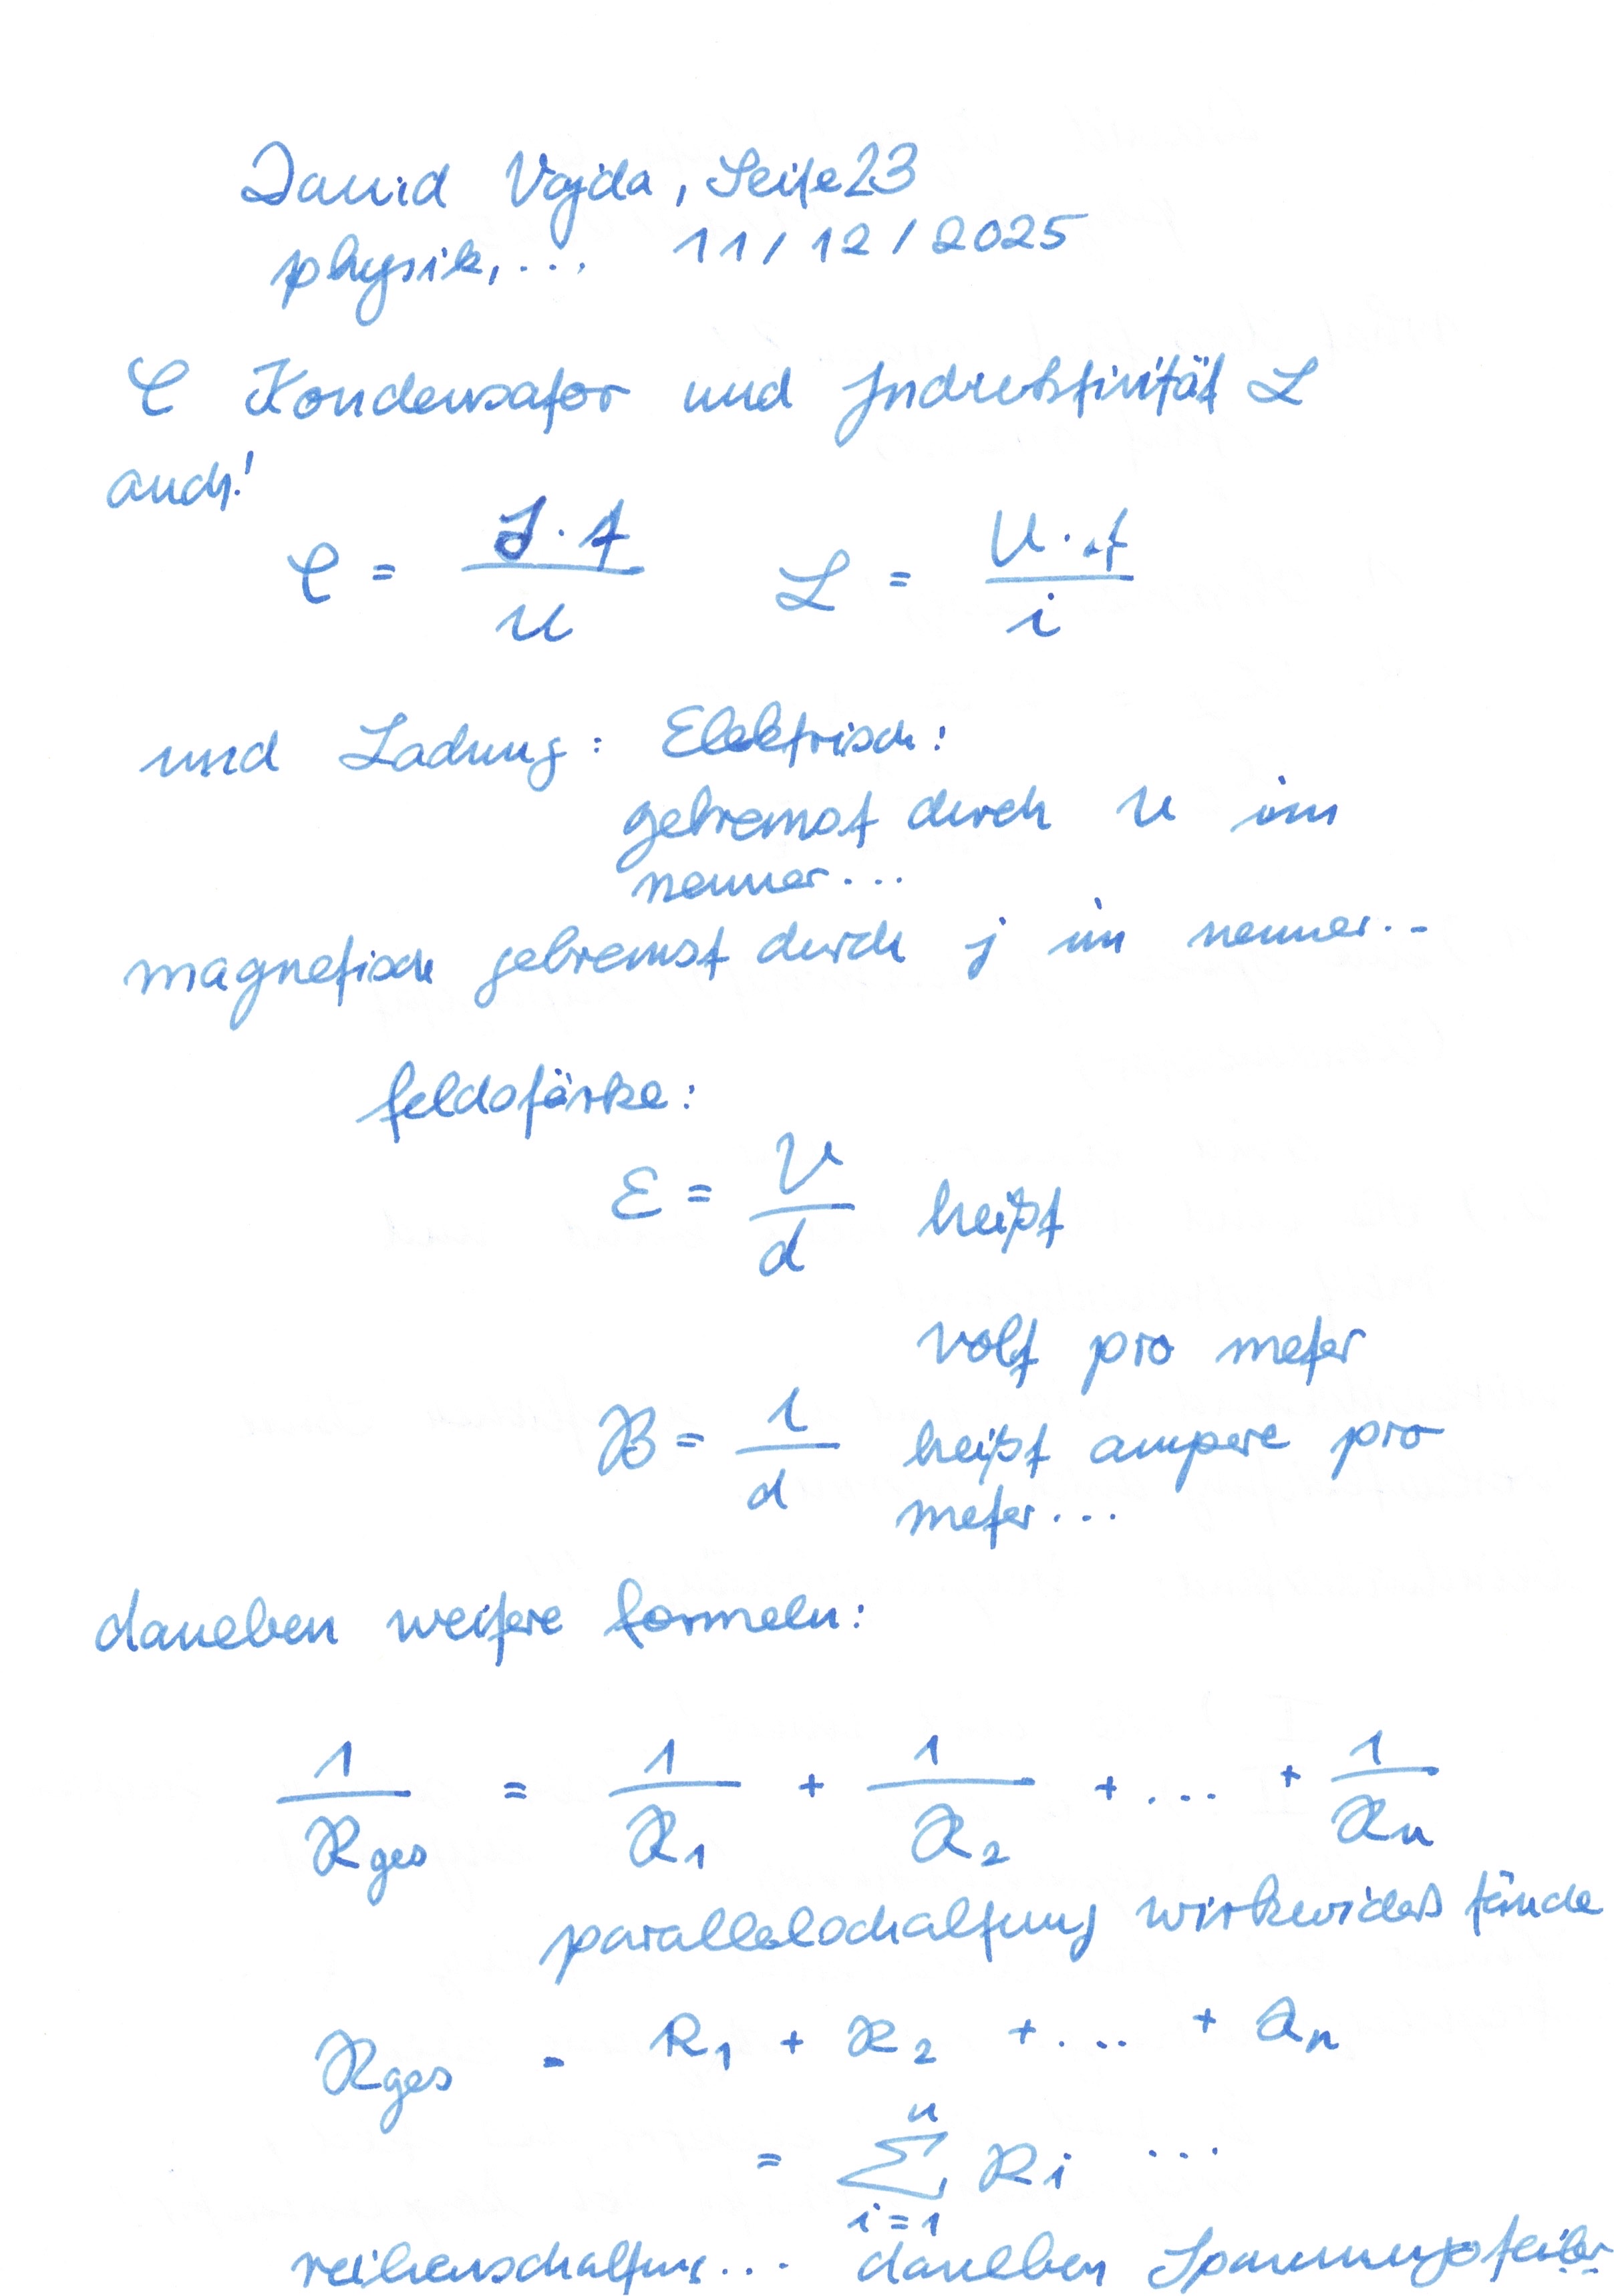 David Vajda, Seite 23
physik,... 11/12/2025
C Kondensator und Induktivität L
auch!
C = I·t / U L = U·t / i
und Ladung: Elektrisch:
gebremst durch U im
nenner...
magnetisch gebremst durch j im nenner...
feldstärke:
E = U / d heißt
volt pro meter
B = i / d heißt ampere pro
meter...
daneben weitere formeln:
1 / Rges = 1 / R1 + 1 / R2 + ... + 1 / Rn
parallelschaltung wirkwiderstände
Rges = R1 + R2 + ... + Rn
= ∑ i=1 n Ri ...
reihenschaltung... daneben Spannungsteiler